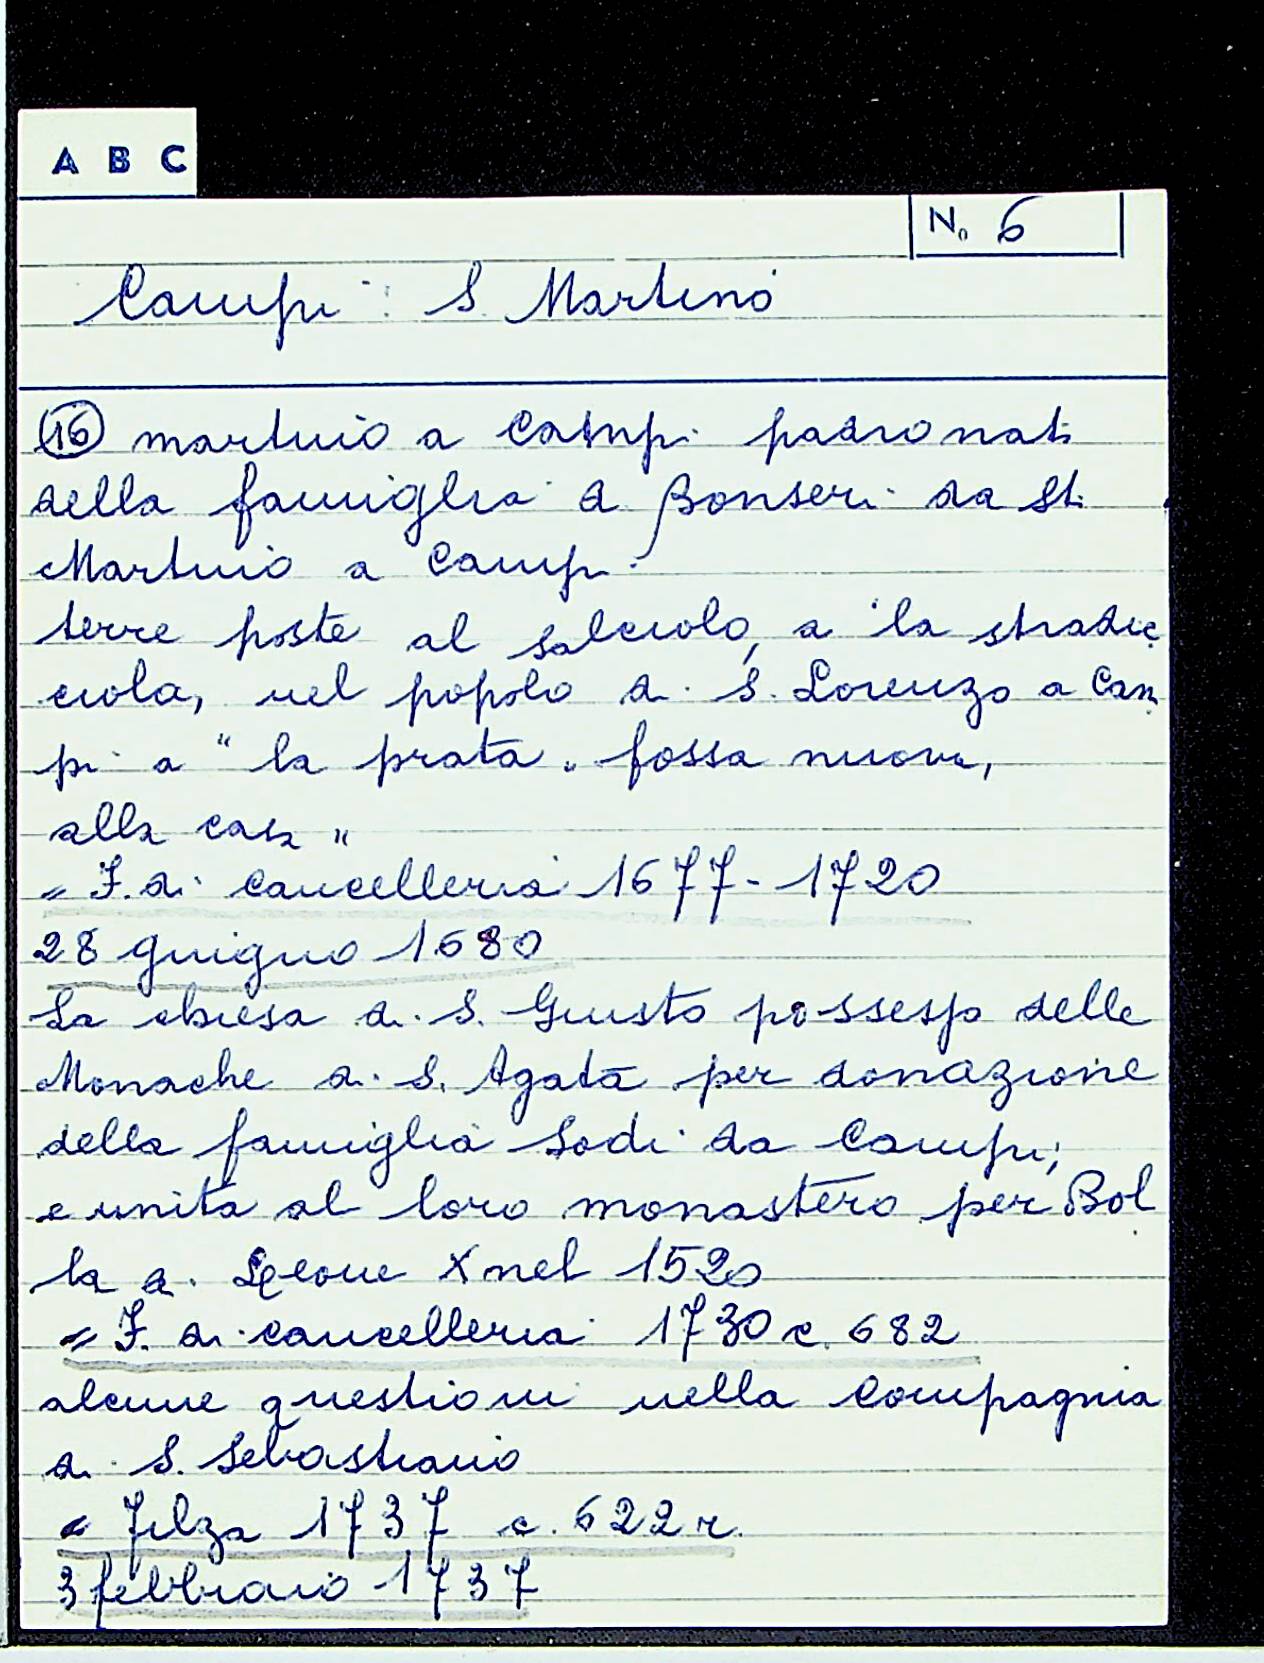 A B C
N. 6
Campi: S. Martino
(16) martino a Campi padronati
della famiglia di Bonseri da St.
Martino a Campi.
terre poste al salciolo, a la stradic
ciola, nel popolo di S. Lorenzo a Cam
pi a "la prata" fossa nuova,
alla casa"
= F. di cancelleria 1677-1720
28 giugno 1680
La chiesa di S. Giusto possesso delle
Monache di S. Agata per donazione
della famiglia Sodi da Campi;
e unita al loro monastero per Bol
la di Leone X nel 1520
= F. di cancelleria 1730 c. 682
alcune questioni nella Compagnia
di S. Sebastiano
= Filza 1737 c. 622 r.
3 febbraio 1737